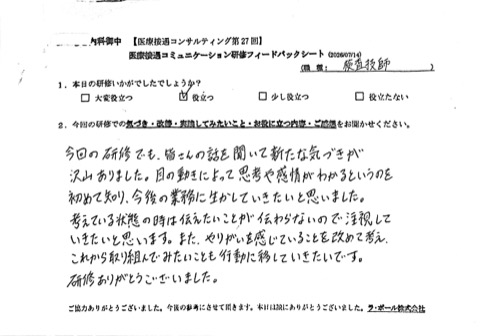 内科御中 【医療接遇コンサルティング第27回】
医療接遇コミュニケーション研修フィードバックシート (2026/07/14)
(職種: 検査技師 )
1.本日の研修いかがでしたでしょうか?
□ 大変役立つ ☑ 役立つ □ 少し役立つ □ 役立たない
2.今回の研修での気づき・改善・実践してみたいこと・お役に立つ内容・ご感想をお聞かせください。
今回の研修でも、皆さんの話を聞いて新たな気づきが
沢山ありました。目の動きによって思考や感情がわかるというのを
初めて知り、今後の業務に生かしていきたいと思いました。
考えている状態の時は伝えたいことが伝わらないので注視して
いきたいと思います。また、やりがいを感じていることを改めて考え、
これから取り組んでみたいことも行動に移していきたいです。
研修ありがとうございました。
ご協力ありがとうございました。今後の参考にさせて頂きます。本日は誠にありがとうございました。 ラ・ポール株式会社